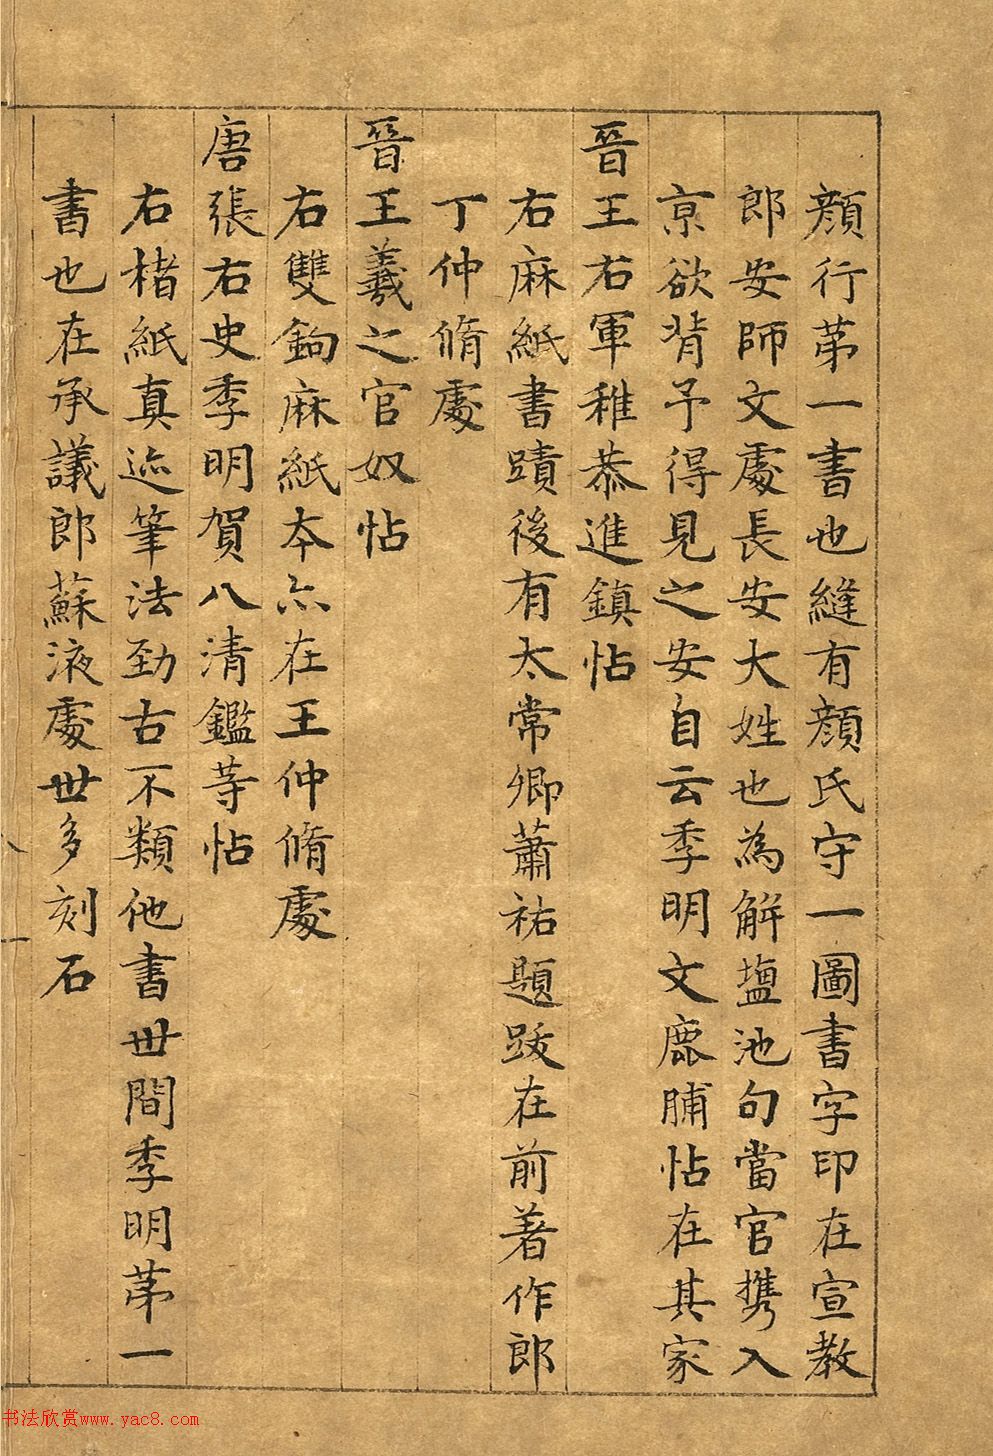 顔行苐一書也縫有顔氏守一圖書字印在宣教
郎安師文處長安大姓也為解塩池句當官携入
京欲背予得見之安自云季明文鹿脯帖在其家
晉王右軍稚恭進鎮帖
右麻紙書蹟後有太常卿蕭祐題跋在前著作郎
丁仲脩處
晉王羲之官奴帖
右雙鉤麻紙本亦在王仲脩處
唐張右史季明賀八清鑑等帖
右楮紙真迹筆法勁古不類他書世間季明苐一
書也在承議郎蘇液處世多刻石
书法欣赏www.yac8.com